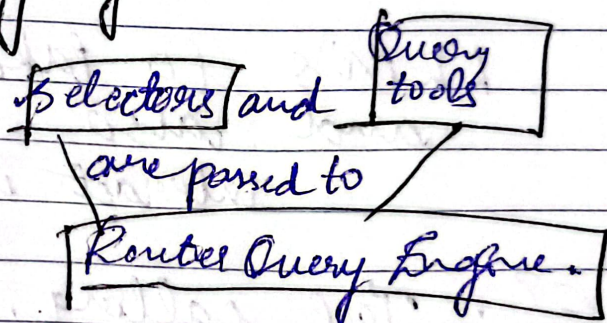 Query
Selectors and tools
are passed to
Router Query Engine.